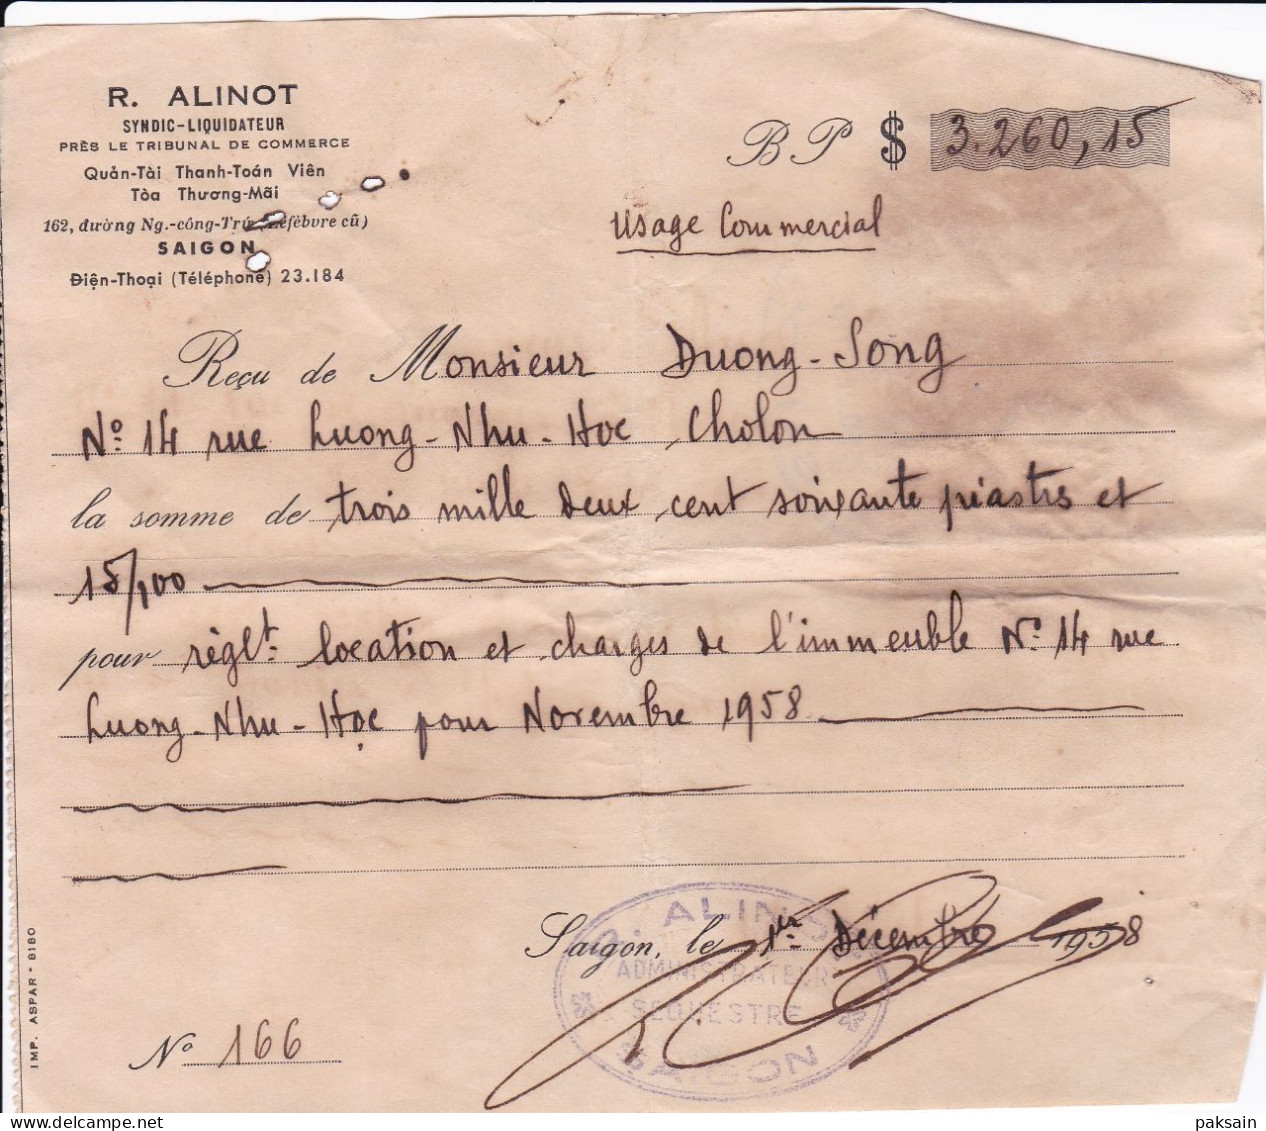 R. ALINOT
SYNDIC-LIQUIDATEUR
PRÈS LE TRIBUNAL DE COMMERCE
Quản-Tài Thanh-Toán Viên
Tòa Thương-Mãi
162, đường Ng.-công-Trứ (Lefèbvre cũ)
SAIGON
Điện-Thoại (Téléphone) 23.184
BP $ 3.260,15
Usage Commercial
Reçu de Monsieur Duong-Song
No. 14 rue Luong-Nhu-Hoc Cholon
la somme de trois mille deux cent soixante piastres et
15/100
pour règlt. location et charges de l'immeuble No. 14 rue
Luong-Nhu-Học pour Novembre 1958
Saigon, le 1er Décembre 1958
R. ALINOT
ADMINISTRATEUR
SEQUESTRE
SAIGON
No 166
IMP. ASPAR - 8180
paksain